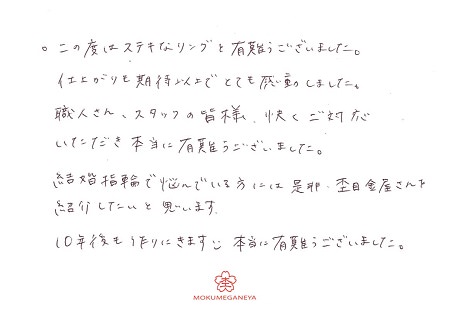 。この度はステキなリングを有難うございました。
仕上がりも期待以上でとても感動しました。
職人さん、スタッフの皆様、快くご対応
いただき本当に有難うございました。
結婚指輪で悩んでいる方には是非、杢目金屋さんを
紹介したいと思います。
10年後も作りにきます 本当に有難うございました。
杢
MOKUMEGANEYA